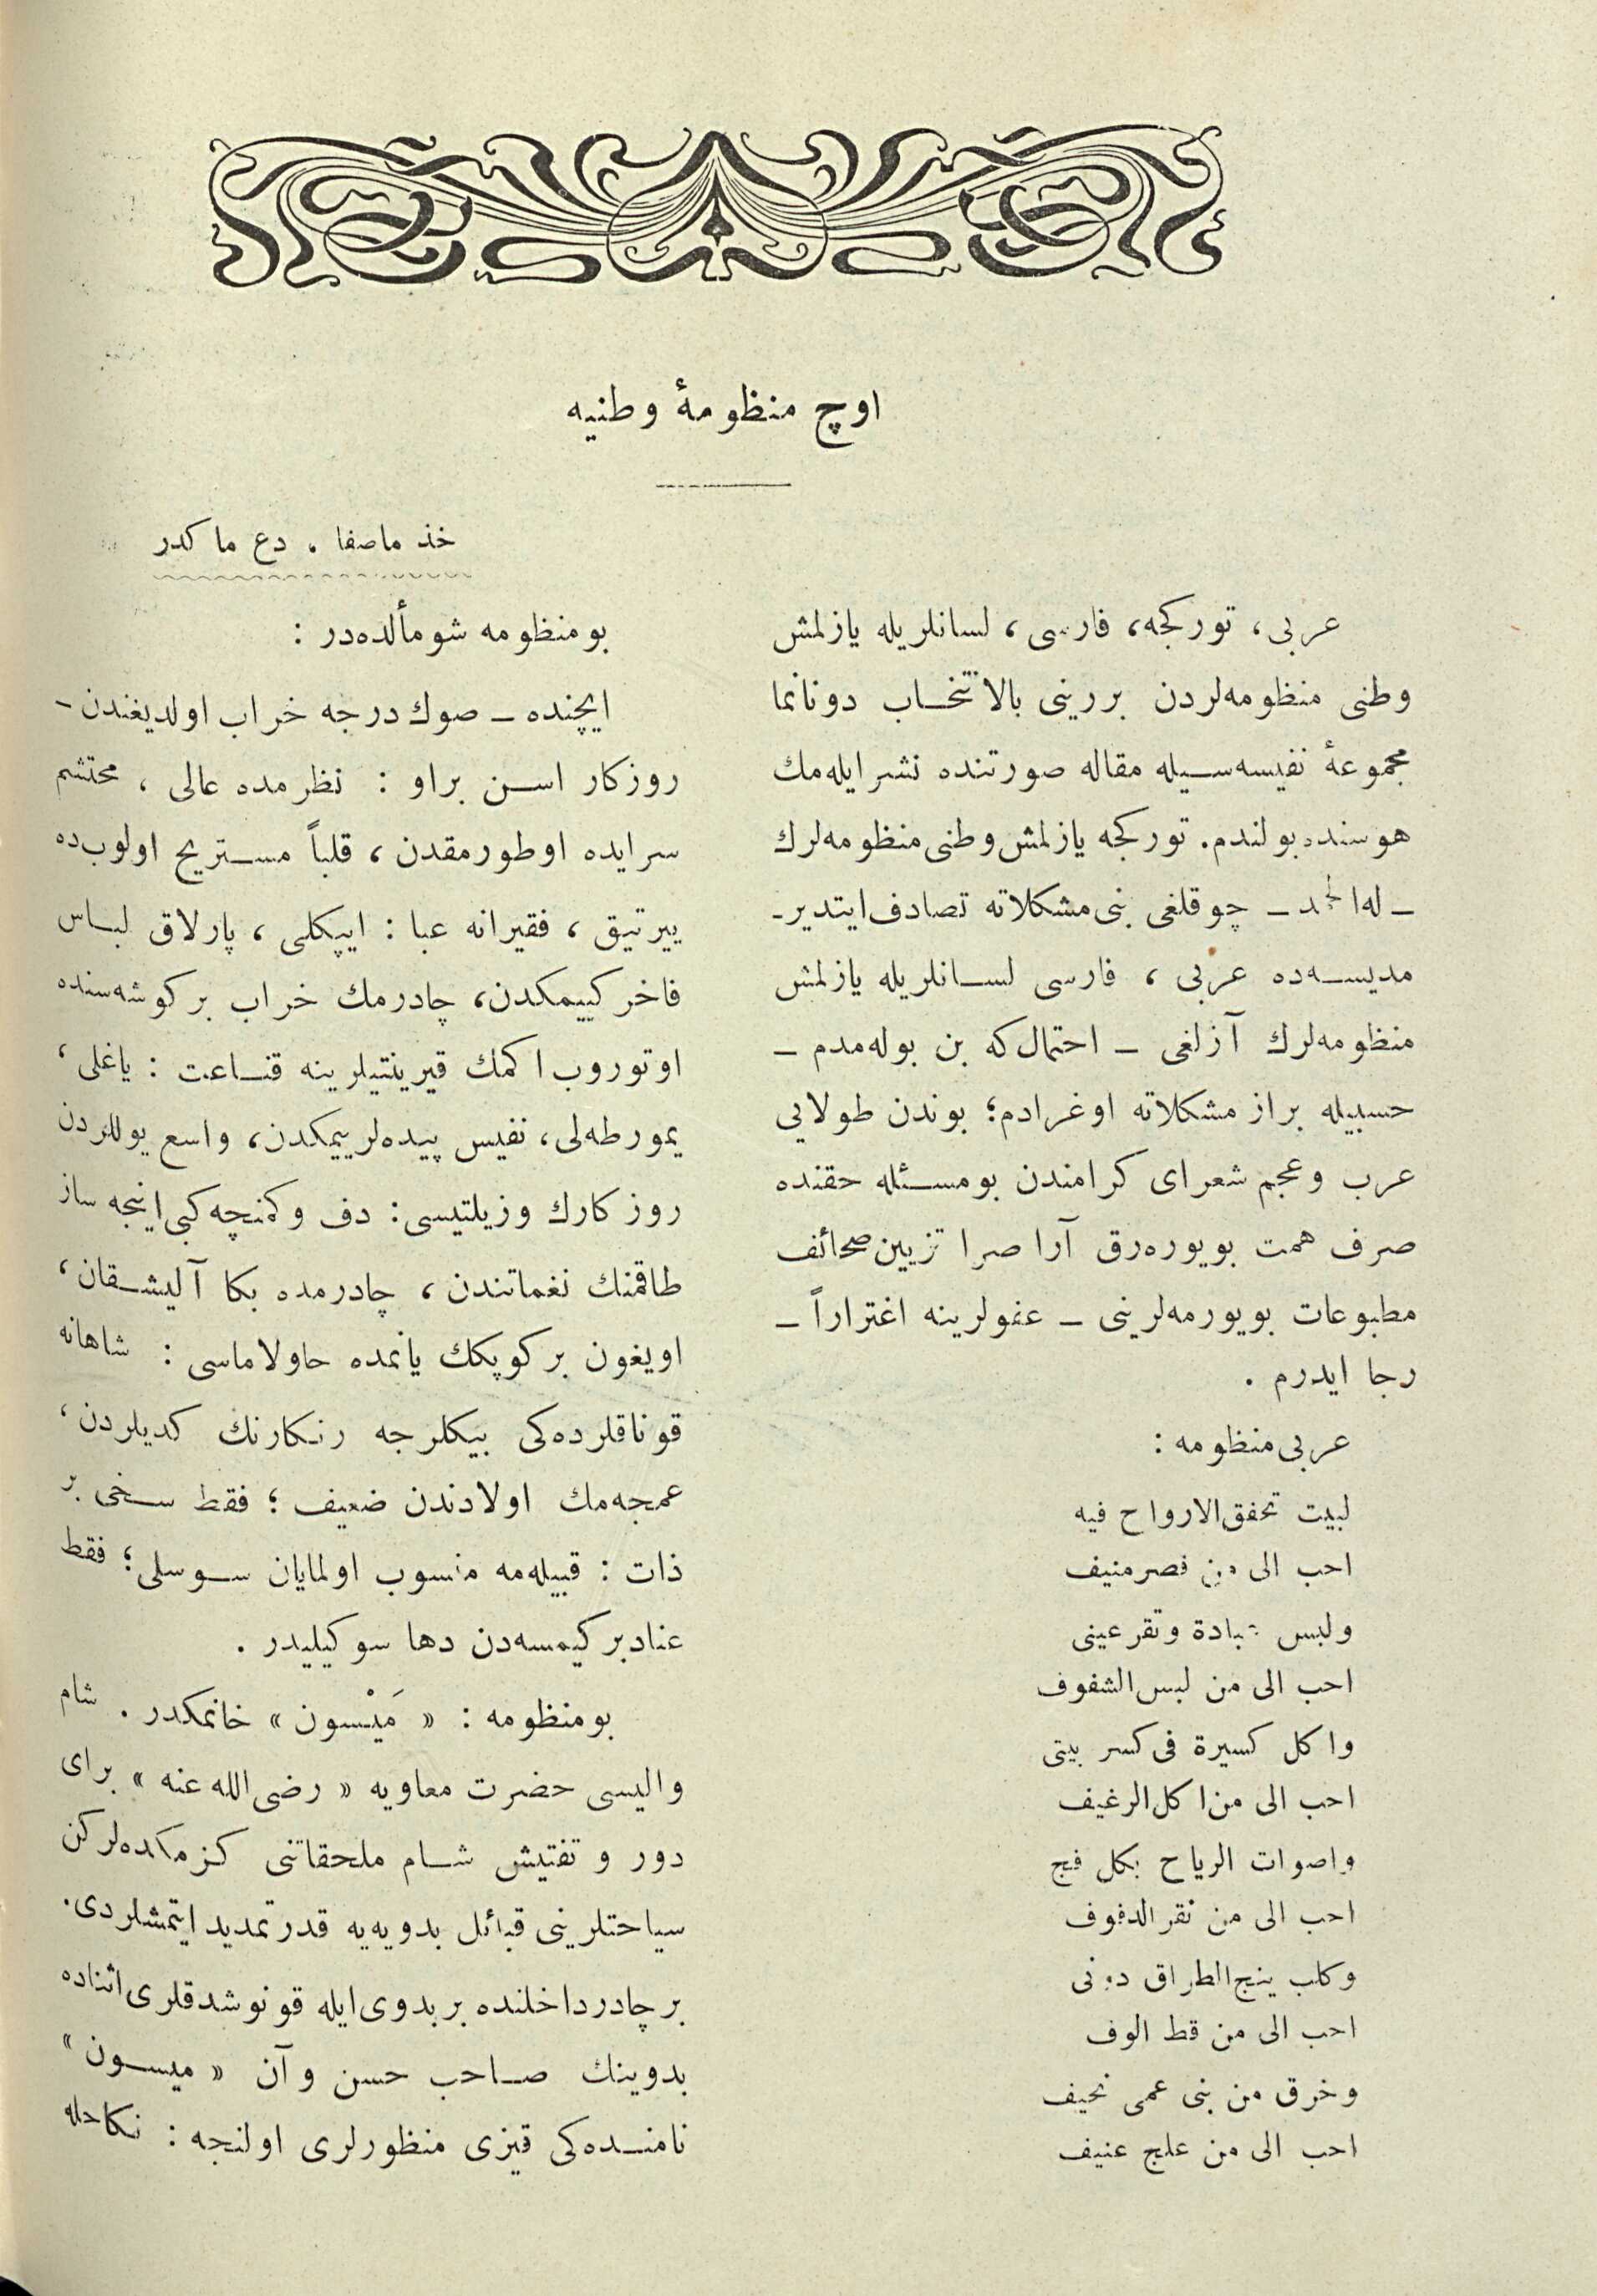 اوچ منظومهٔ وطنیه
خذ ماصفا . دع ما کدر
عربی، تورکجه، فارسی، لسانلریله یازلمش
وطنی منظومه‌لردن بررینی بالانتخاب دوناما
مجموعهٔ نفیسه‌سیله مقاله صورتنده نشر ایله‌مك
هوسنده بولندم. تورکجه یازلمش وطنی منظومه‌لرك
ـ له‌الحمد ـ چوقلغی بنی مشکلاته تصادف ایتدیر-
مدیسه‌ده عربی ، فارسی لسانلریله یازلمش
منظومه‌لرك آزلغی ـ احتمال‌که بن بوله‌مدم ـ
حسبیله براز مشکلاته اوغرادم؛ بوندن طولایی
عرب وعجم شعرای کرامندن بومسئله حقنده
صرف همت بویوره‌رق آرا صرا تزیین صحائف
مطبوعات بویورمه‌لرینی ـ عفولرینه اغتراراً ـ
رجا ایدرم .
عربی منظومه :
لبیت تخفق الارواح فیه
احب الی من قصر منیف
ولبس عبادة وتقر عینی
احب الی من لبس الشفوف
واکل کسیرة فی کسر بیتی
احب الی من اکل الرغیف
واصوات الریاح بکل فج
احب الی من نقر الدفوف
وکلب ینبح الطراق دونی
احب الی من قط الوف
وخرق من بنی عمی نحیف
احب الی من علج عنیف
بومنظومه شومألده‌در :
ایچنده ـ صوك درجه خراب اولدیغندن ـ
روزکار اسن براو : نظرمده عالی ، محتشم
سرایده اوطورمقدن ، قلباً مستریح اولوب‌ده
ییرتیق ، فقیرانه عبا : ایپکلی ، پارلاق لباس
فاخر کییمکدن، چادرمك خراب برکوشه‌سنده
اوتوروب اکمك قیرینتیلرینه قناعت : یاغلی ،
یمورطه‌لی، نفیس پیده‌لر ییمکدن، واسع یوللردن
روزکارك وزیلتیسی: دف وکمنچه کبی اینجه ساز
طاقمنك نغماتندن ، چادرمده بکا آلیشقان ،
اویغون برکوپکك یانمده حاولاماسی : شاهانه
قوناقلرده‌کی بیکلرجه رنکارنك کدیلردن ،
عمجه‌مك اولادندن ضعیف ؛ فقط سخی بر
ذات : قبیله‌مه منسوب اولمایان سوسلی؛ فقط
عناد برکیمسه‌دن دها سوکیلیدر .
بومنظومه : « مَیْسون » خانمکدر . شام
والیسی حضرت معاویه « رضی الله عنه » برای
دور و تفتیش شام ملحقاتنی کزمکده‌لرکن
سیاحتلرینی قبائل بدویه‌یه قدر تمدید ایتمشلردی.
برچادر داخلنده بربدوی ایله قونوشدقلری اثناده
بدوینك صاحب حسن وآن « میسون »
نامنده‌کی قیزی منظورلری اولنجه : نکاحله